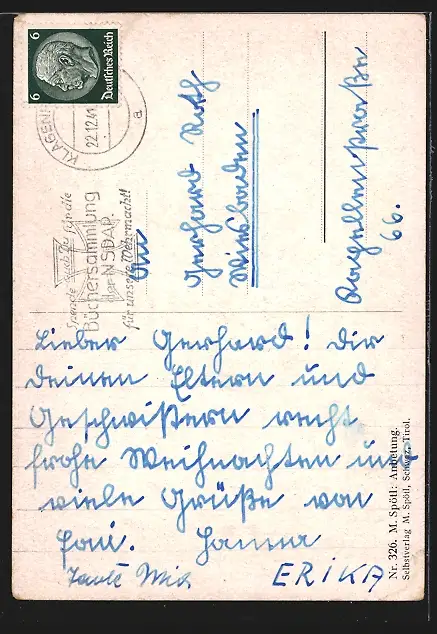 6
6
Deutsches Reich
KLAGENF
22.12.41
a
Spende auch Du für die
Büchersammlung
der NSDAP.
für unsere Wehrmacht!
An
Gerhard Roth
Wiesbaden
Kapellenstraße
66.
Lieber Gerhard! Dir
deinen Eltern und
Geschwistern recht
frohe Weihnachten und
viele Grüße von
Hanna
Tante
ERIKA
Nr. 326. M. Spötl: Anbetung.
Selbstverlag M. Spötl, Schwaz, Tirol.